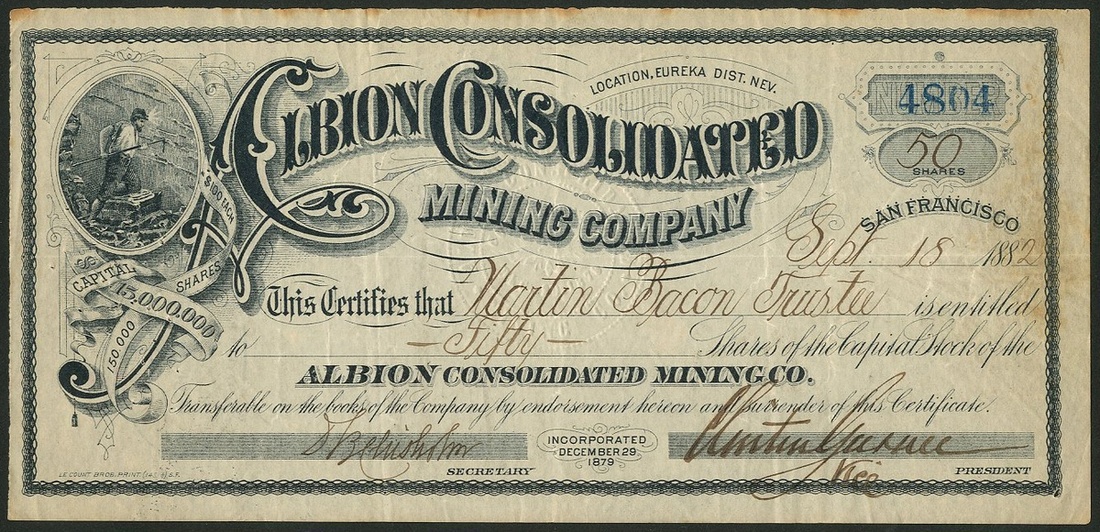 LOCATION, EUREKA DIST. NEV.
ALBION CONSOLIDATED
MINING COMPANY
No 4804
50
SHARES
SAN FRANCISCO
Sept. 18 1882
$100 EACH
CAPITAL 15,000.000
150 000 SHARES
This Certifies that Martin Bacon Trustee is entitled
to — Fifty — Shares of the Capital Stock of the
ALBION CONSOLIDATED MINING CO.
Transferable on the books of the Company by endorsement hereon and surrender of this Certificate.
INCORPORATED
DECEMBER 29.
1879
SECRETARY
Vice PRESIDENT
LE COUNT BROS. PRINT. S.F.